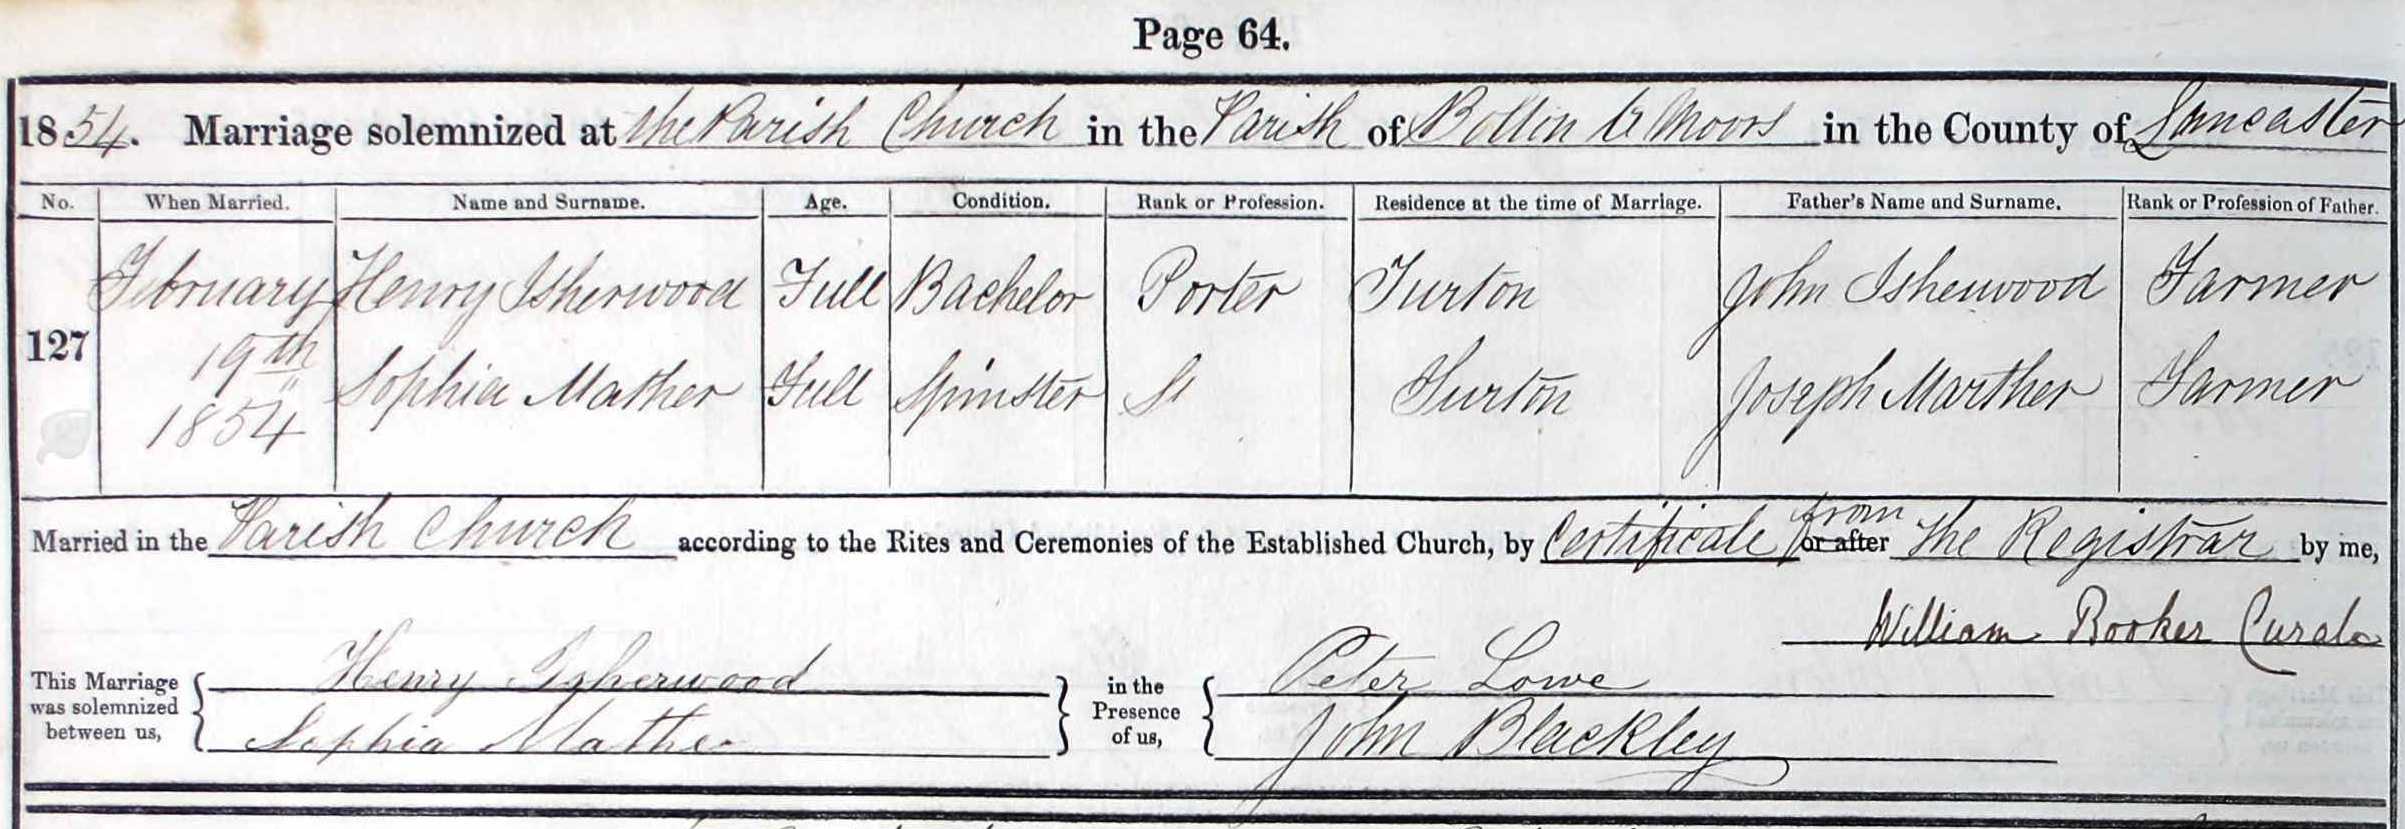 Page 64.
1854. Marriage solemnized at the Parish Church in the Parish of Bolton le Moors in the County of Lancaster
No. When Married. Name and Surname. Age. Condition. Rank or Profession. Residence at the time of Marriage. Father's Name and Surname. Rank or Profession of Father.
February Henry Isherwood Full Bachelor Porter Turton John Isherwood Farmer
127 19th Sophia Mather Full Spinster Turton Joseph Marther Farmer
1854
Married in the Parish Church according to the Rites and Ceremonies of the Established Church, by Certificate from or after the Registrar by me,
William Booker Curate
This Marriage was solemnized between us, Henry Isherwood Sophia Mather in the Presence of us, Peter Lowe John Blackley